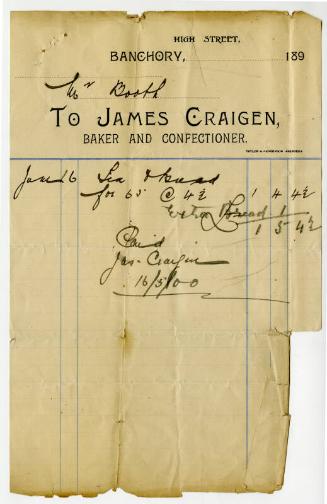 HIGH STREET,
BANCHORY, 189
Mr Booth
TO JAMES CRAIGEN,
BAKER AND CONFECTIONER.
TAYLOR & HENDERSON ABERDEEN
Tea & Bread
for 65 @ 4½ 1 4 4½
Extra Bread 1
1 5 4½
Paid
Jas. Craigen
16/5/00